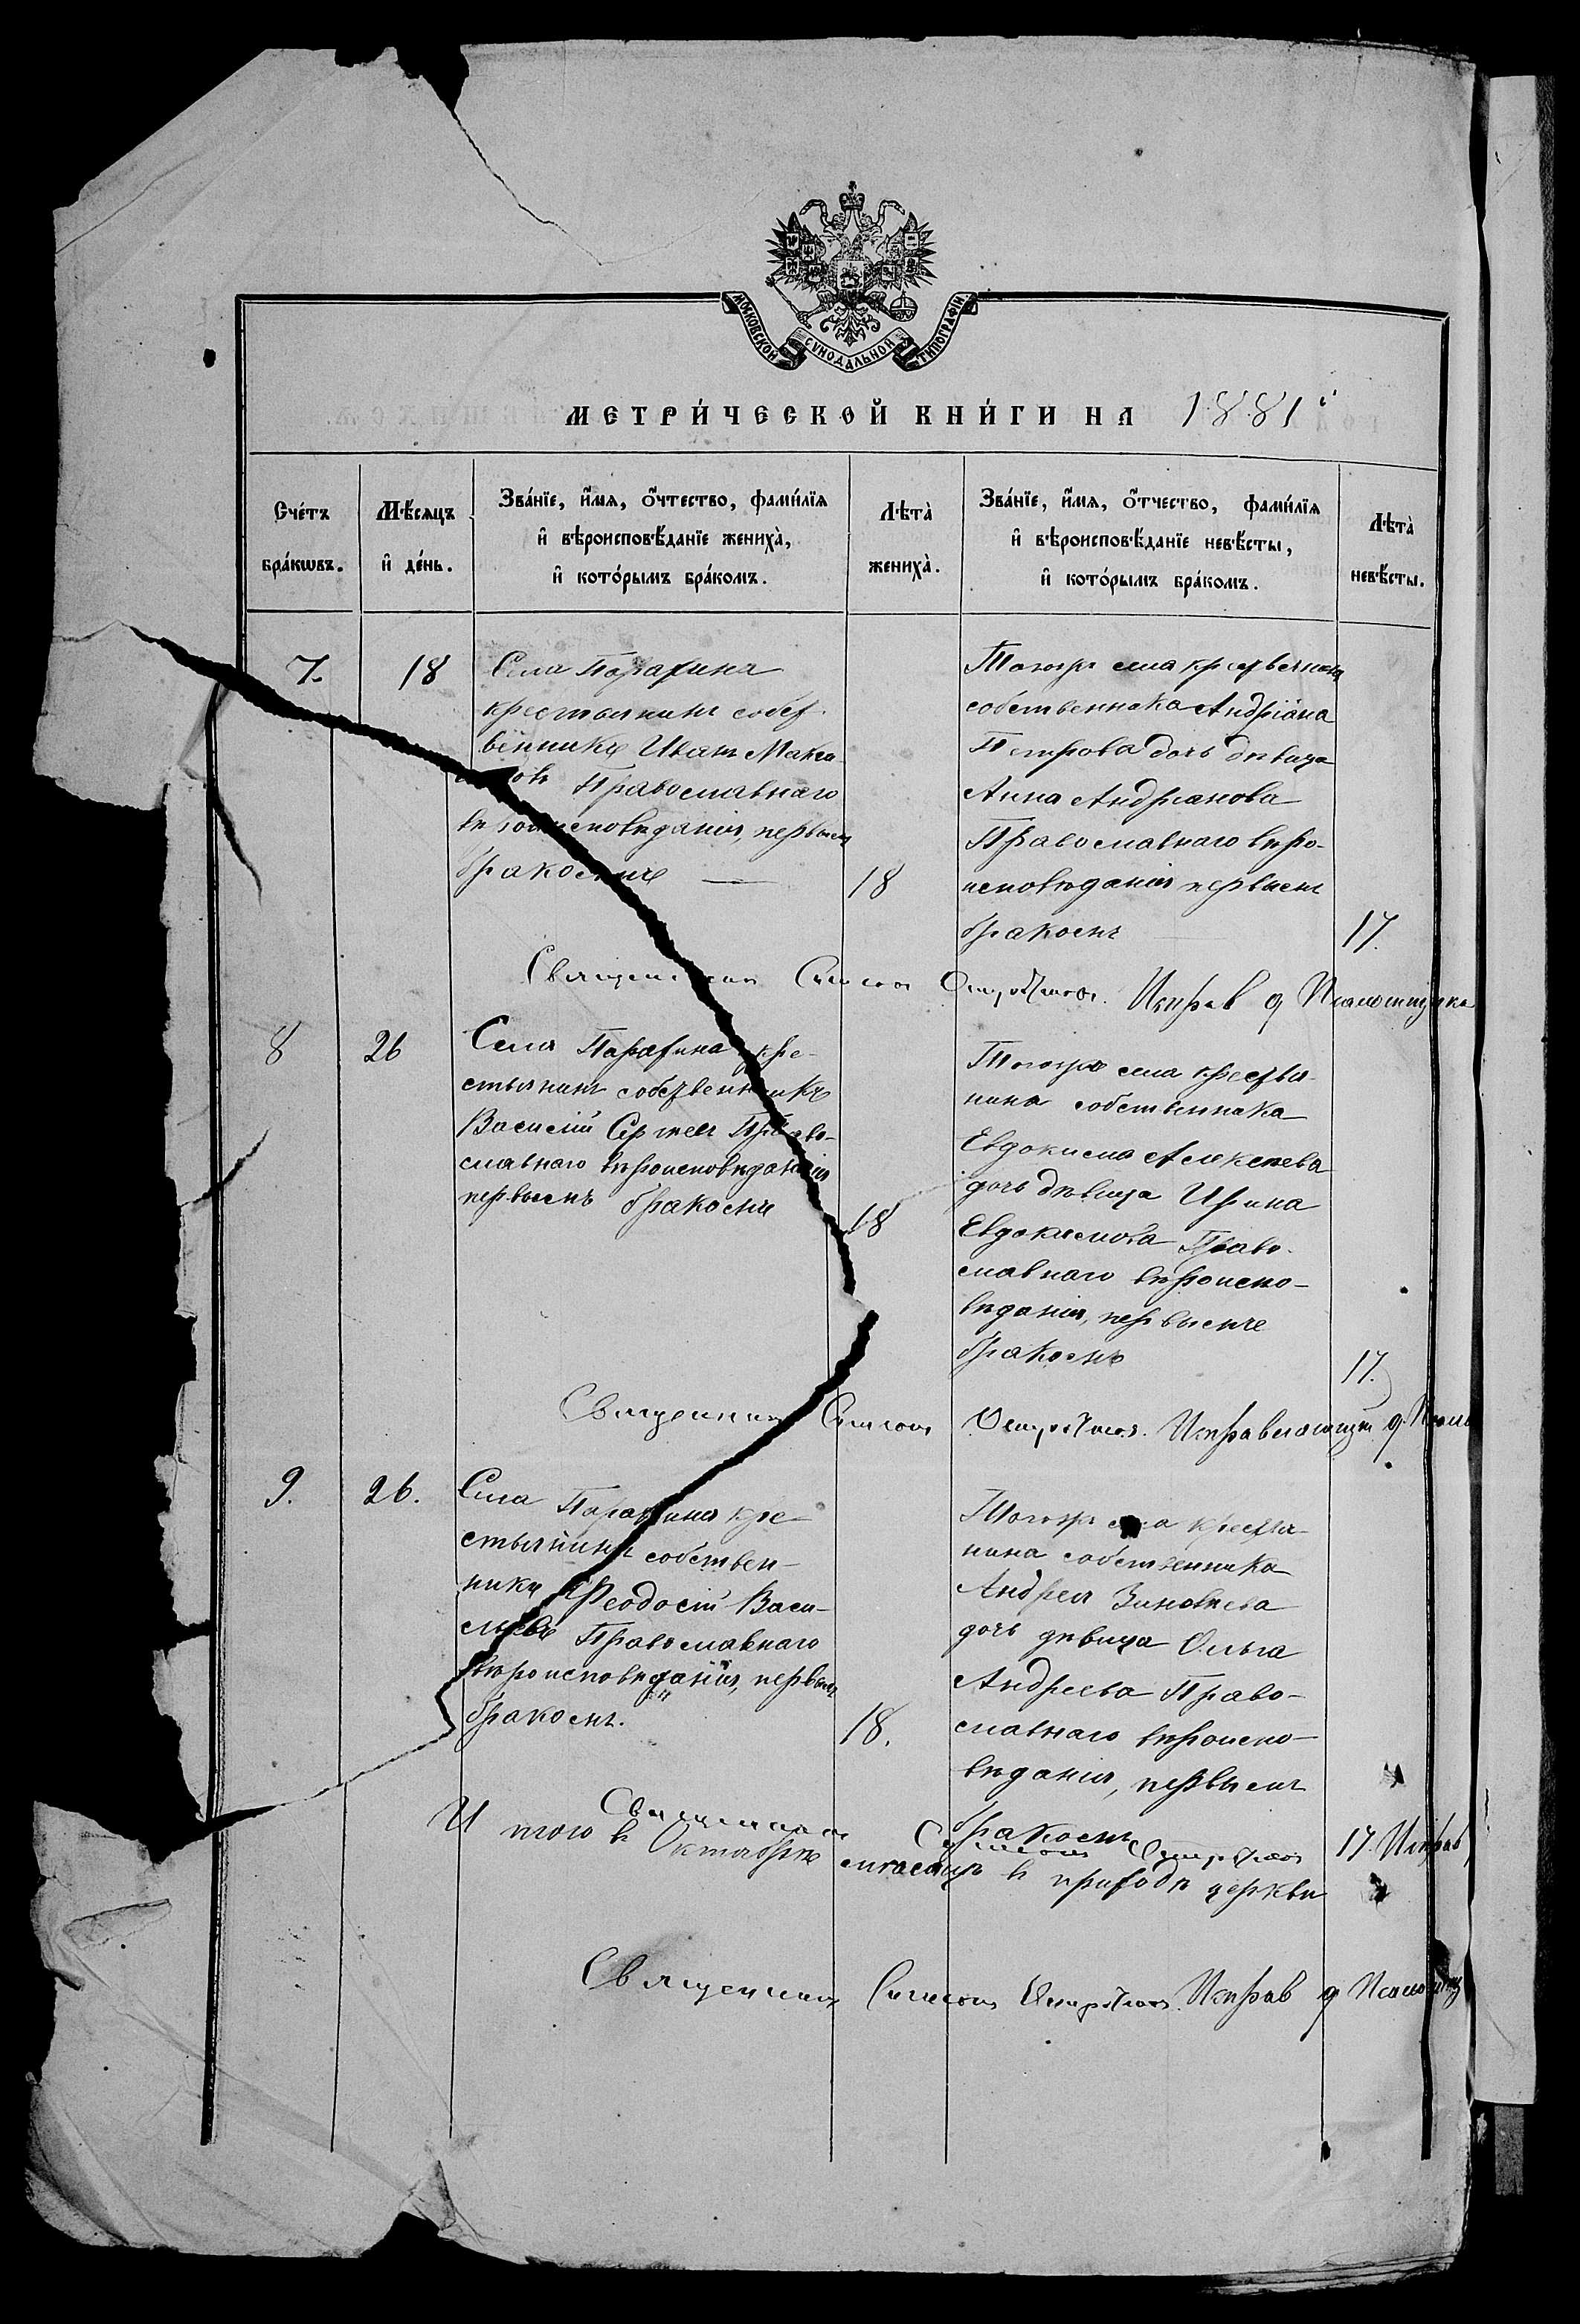 МОСКОВСКОЙ СѴНОДАЛЬНОЙ ТИПОГРАФІИ
МЕТРИ́ЧЕСКОЙ КНИ́ГИ НА 1881
Сче́тъ бра́кѡвъ.
Мѣ́сяцъ и҆ де́нь.
Зва́нїе, и҆́мя, ѻ҆́тчество, фами́лїя
и҆ вѣроисповѣ́данїе жениха̀,
и҆ кото́рымъ бра́комъ.
Лѣта̀ жениха̀.
Зва́нїе, и҆́мя, ѻ҆́тчество, фами́лїя
и҆ вѣроисповѣ́данїе невѣ́сты,
и҆ кото́рымъ бра́комъ.
Лѣта̀ невѣ́сты.
7. 18
Села Парафина
крестьянинъ собст
венникъ Иванъ Макси
мовъ Православнаго
вѣроисповѣданія, первымъ
бракомъ 18
Тогожъ села крестьянина
собственника Андріана
Петрова дочь дѣвица
Анна Андрианова
Православнаго вѣро-
исповѣданія первымъ
бракомъ 17.
Священникъ Симеон Исправ д Псаломщика
8 26
Села Парафина кре-
стьянинъ собственникъ
Василій Сергеев Право-
славнаго вѣроисповѣданія
первымъ бракомъ 18
Тогожъ села крестья-
нина собственника
Евдокима Алексѣева
дочь дѣвица Ирина
Евдокимова Право-
славнаго вѣроиспо-
вѣданія, первымъ
бракомъ 17.
Священникъ Симеон Исправляющій д. Псалом
9. 26.
Села Парафина кре-
стьянинъ собствен-
никъ Феодосій Васи-
льевъ Православнаго
вѣроисповѣданія, первымъ
бракомъ. 18.
Тогожъ села крестья-
нина собственника
Андрея Зиновьева
дочь дѣвица Ольга
Андреева Право-
славнаго вѣроиспо-
вѣданія, первымъ
бракомъ 17.
Священникъ Симеон Исправ
Итого в Октобрѣ в приходѣ церкви
Священникъ Симеон Исправ д Псаломщ